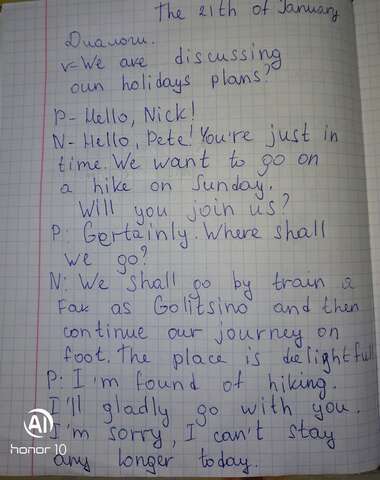 The 21th of January
Диалоги.
v=We are discussing
oun holidays plans?
P- Hello, Nick!
N- Hello, Pete! You're just in
time. We want to go on
a hike on Sunday.
Will you join us?
P: Gertainly. Where shall
we go?
N: We shall go by train a
Far as Golitsino and then
continue our journey on
foot. The place is delightfull
P: I'm found of hiking.
I'll gladly go with you.
I'm sorry, I can't stay
any longer today.
AI
honor 10